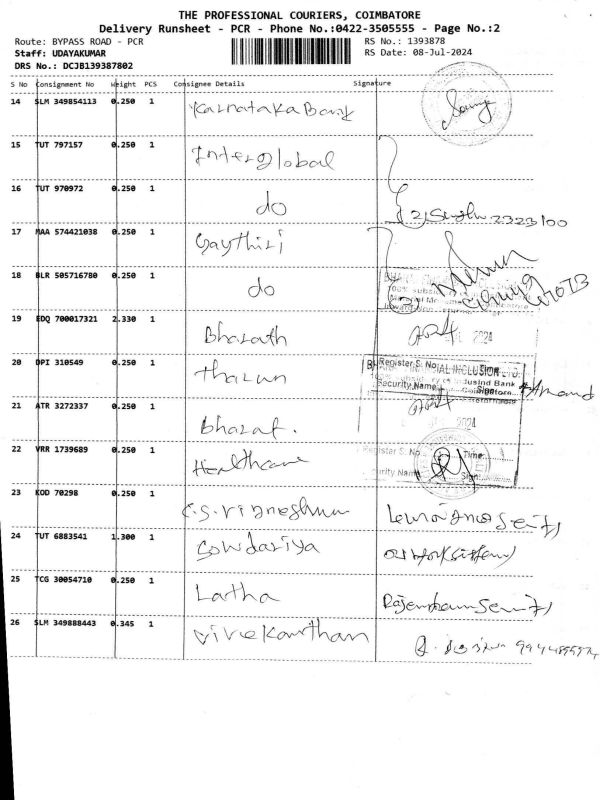 THE PROFESSIONAL COURIERS, COIMBATORE
Delivery Runsheet - PCR - Phone No.:0422-3505555 - Page No.:2
Route: BYPASS ROAD - PCR RS No.: 1393878
Staff: UDAYAKUMAR RS Date: 08-Jul-2024
DRS No.: DCJB139387802
S No Consignment No Weight PCS Consignee Details Signature
14 SLM 349854113 0.250 1 Karnataka Bank
15 TUT 797157 0.250 1 Interglobal
16 TUT 970972 0.250 1 do
17 MAA 574421038 0.250 1 Gaythiri
18 BLR 505716780 0.250 1 do
19 EDQ 700017321 2.330 1 Bharath 2024
20 DPI 310549 0.250 1 Tharun
Register S. No. Time
Security Name Sign Anand
21 ATR 3272337 0.250 1 Bharat. 2024
22 VRR 1739689 0.250 1 Healthcare
Register S. No. Time:
Security Name Sign
23 KOD 70298 0.250 1 C.S. Vigneshwar
24 TUT 6883541 1.300 1 Sowdariya
25 TCG 30054710 0.250 1 Latha
26 SLM 349888443 0.345 1 Vivekanthan